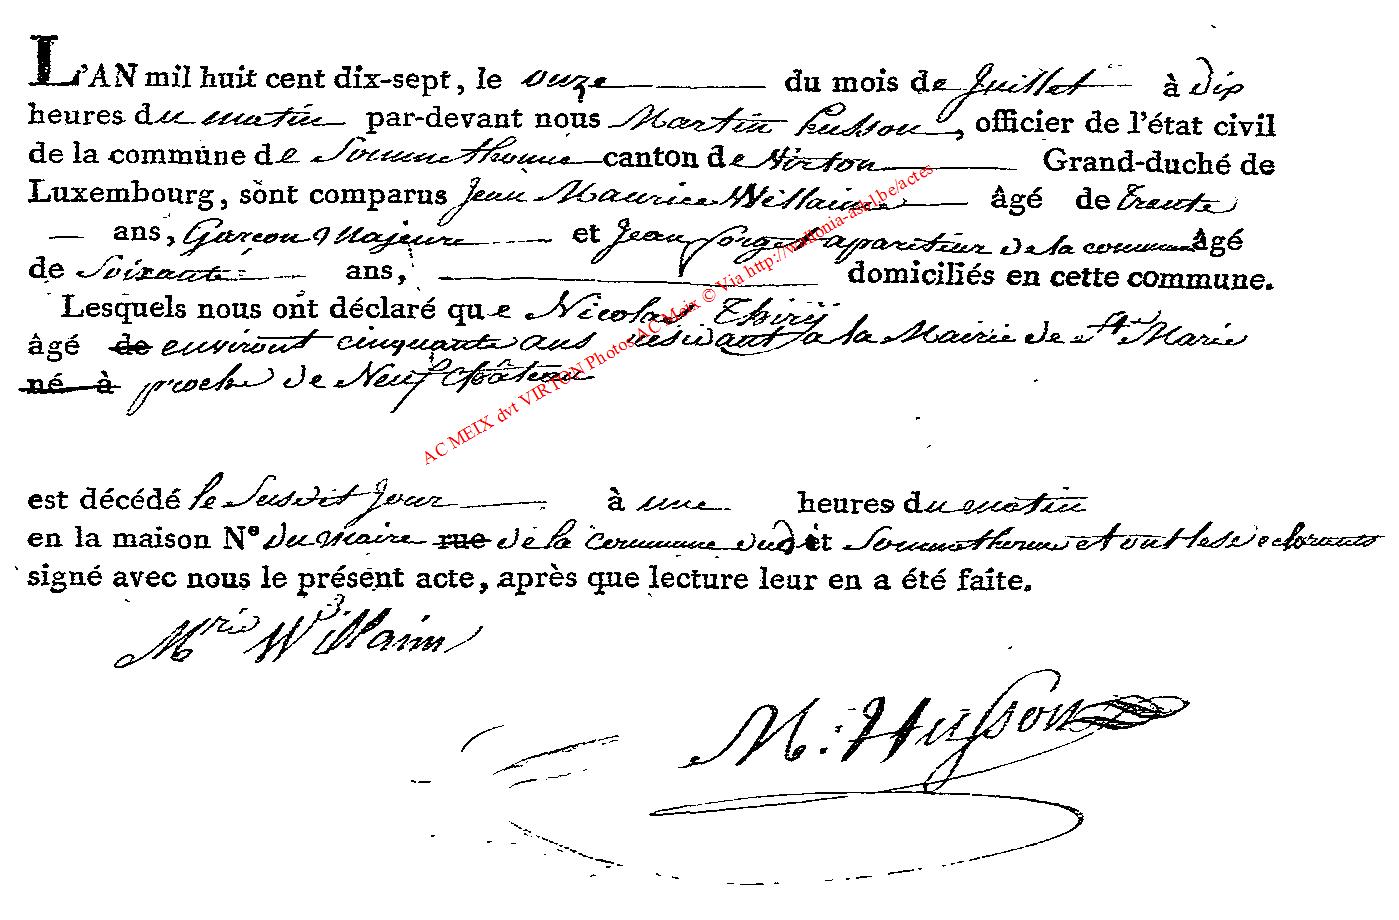 L'AN mil huit cent dix-sept, le onze du mois de Juillet à dix
heures du matin par-devant nous Martin husson, officier de l'état civil
de la commune de Sommethonne canton de Virton Grand-duché de
Luxembourg, sont comparus Jean Maurice Willaime âgé de trente
ans, Garçon Majeure et Jean Sorget apariteur de la commune âgé
de Soixante ans, domiciliés en cette commune.
Lesquels nous ont déclaré que Nicolas Thiry
âgé de environt cinquante ans résidant a la Mairie de Ste Marie
né à proche de Neuf château
est décédé le Susdit Jour à une heures du matin
en la maison N° du maire rue de la commune dud et Sommethonne et ont les declarants
signé avec nous le présent acte, après que lecture leur en a été faite.
Mrie Willaim
M. Husson
AC MEIX dvt VIRTON Photos AC Meix © Via http://wallonia-asbl.be/actes